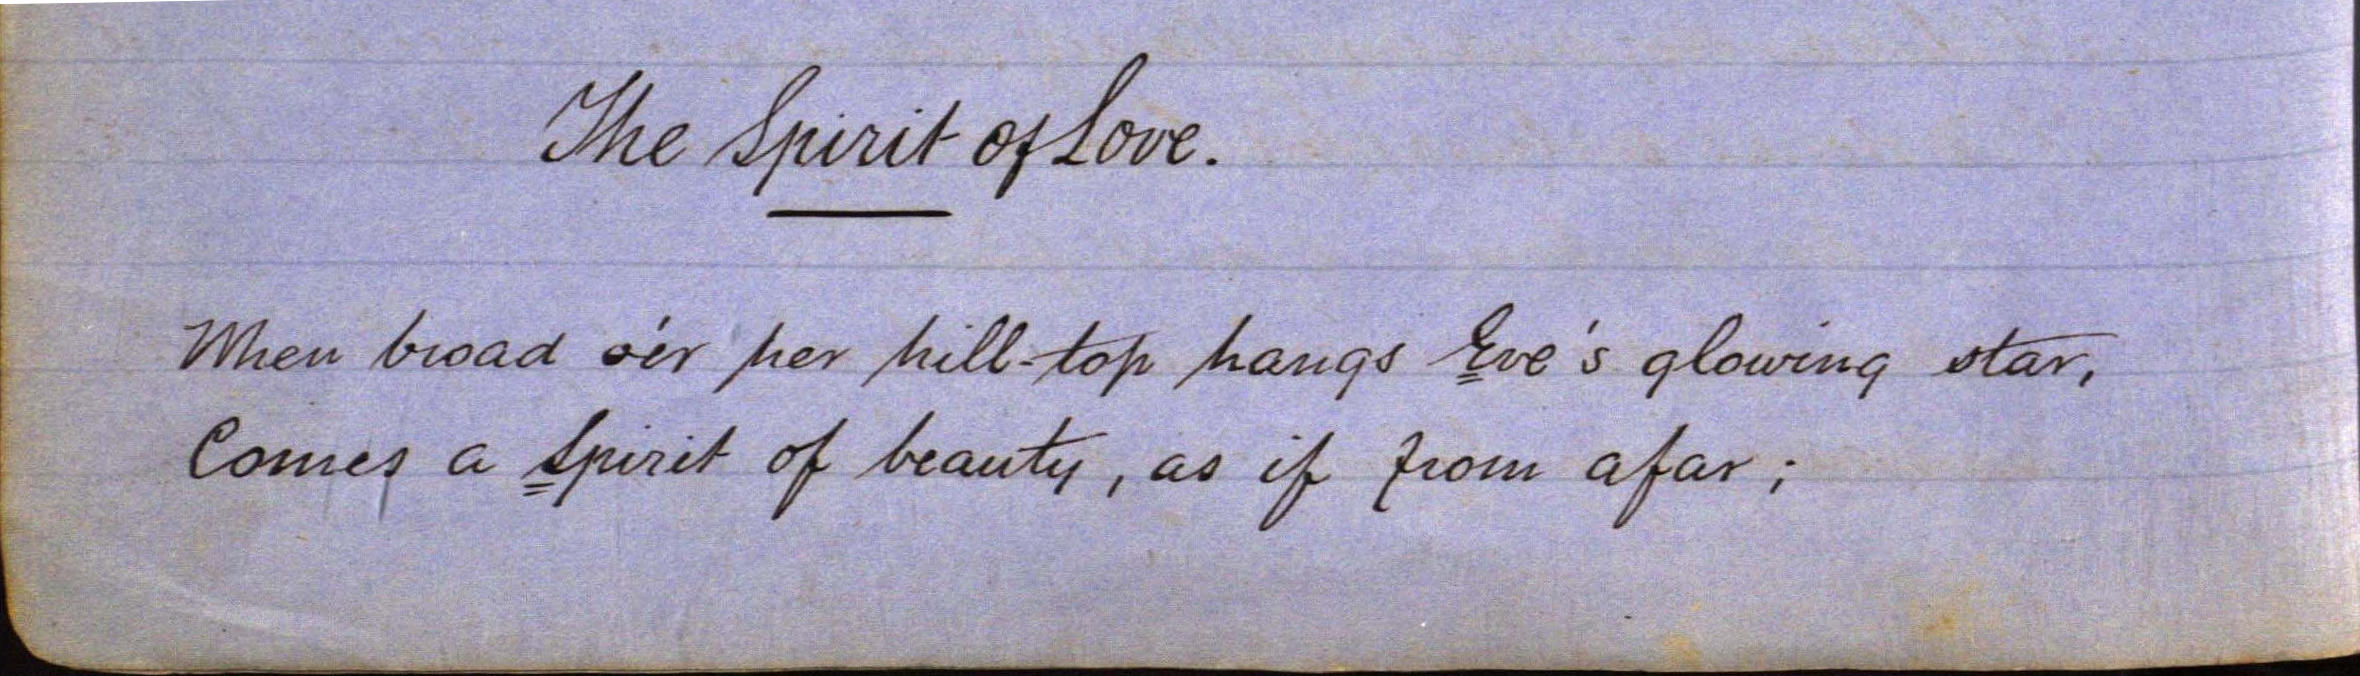 The Spirit of Love.
When broad o'er her hill-top hangs Eve's glowing star,
Comes a Spirit of beauty, as if from afar;